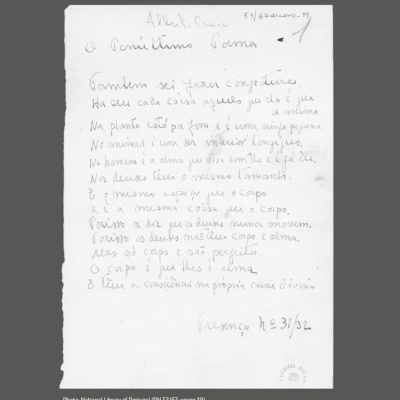 Albert. Caeiro
O Penúltimo Poema
Tambem sei fazer conjeturas.
Ha em cada coisa aquilo que ela é que
a anima.
Na planta está por fora e é uma ninfa pequena.
No animal é um ser interior longinquo.
No homem é a alma que vive com êle e é já êle.
Nos deuses têm o mesmo tamanho
E o mesmo espaço que o corpo
E é a mesma coisa que o corpo.
Porisso se diz que os deuses nunca morrem.
Porisso os deuses não têm corpo e alma
Mas só corpo e são perfeitos.
O corpo é que lhes é alma
E têm a consciência na própria carne divina.
Presença Nº 31/32